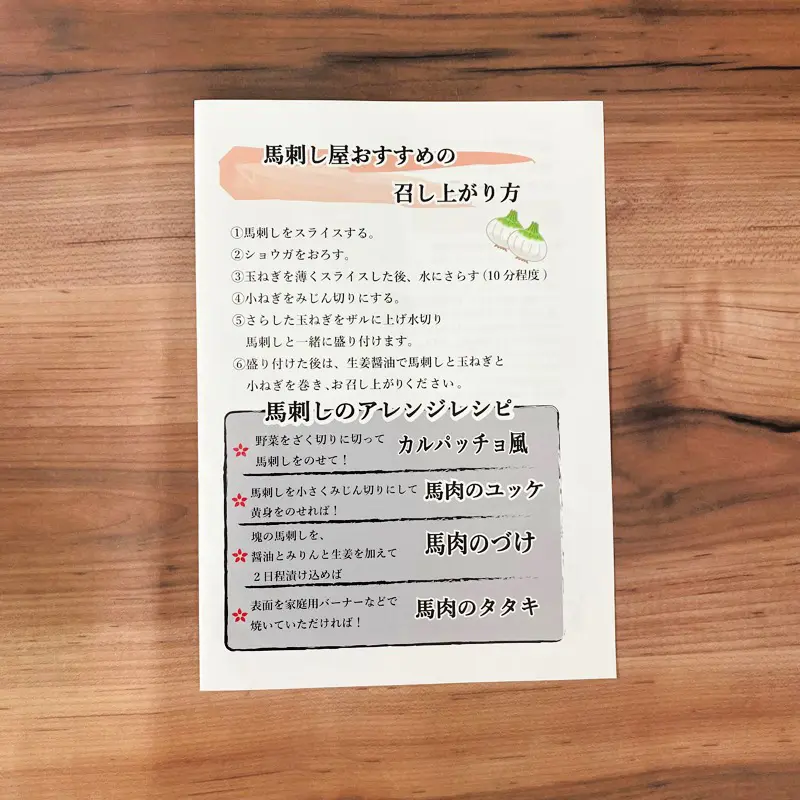 馬刺し屋おすすめの
召し上がり方
①馬刺しをスライスする。
②ショウガをおろす。
③玉ねぎを薄くスライスした後、水にさらす(10分程度)
④小ねぎをみじん切りにする。
⑤さらした玉ねぎをザルに上げ水切り
馬刺しと一緒に盛り付けます。
⑥盛り付けた後は、生姜醤油で馬刺しと玉ねぎと
小ねぎを巻き、お召し上がりください。
馬刺しのアレンジレシピ
野菜をざく切りに切って
馬刺しをのせて！
カルパッチョ風
馬刺しを小さくみじん切りにして
黄身をのせれば！
馬肉のユッケ
塊の馬刺しを、
醤油とみりんと生姜を加えて
２日程漬け込めば
馬肉のづけ
表面を家庭用バーナーなどで
焼いていただければ！
馬肉のタタキ